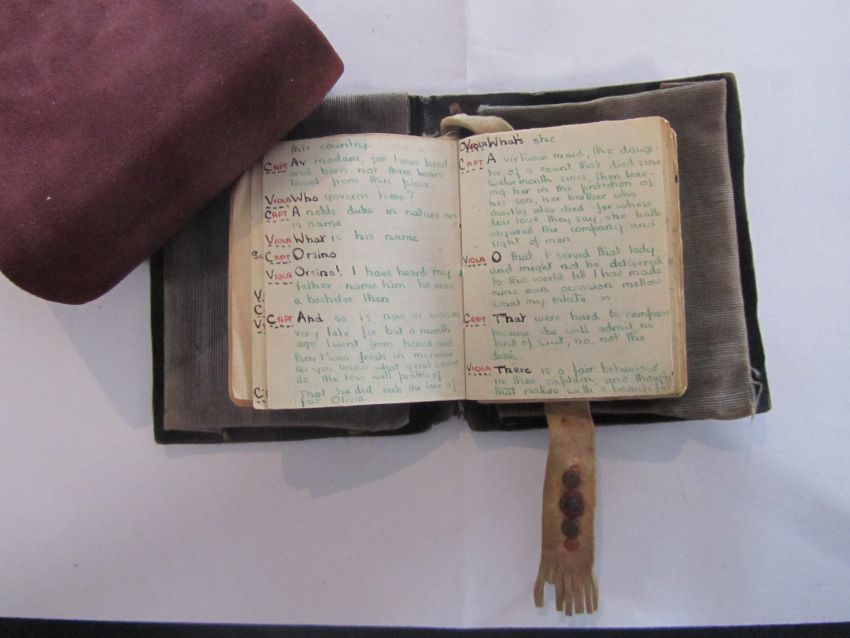 this country.
CAPT Ay madam, for I was bred
and born not three hours
travel from this place.
VIOLA Who governs here?
CAPT A noble duke in nature as
in name
VIOLA What is his name
CAPT Orsino
VIOLA Orsino! I have heard my
father name him: he was
a bachelor then
CAPT And so is now or was so
very late for but a month
ago I went from hence, and
then t'was fresh in murmur
as you know what great ones
do the less will prattle of
That he did seek the love of
fair Olivia.
VIOLA What's she
CAPT A virtuous maid, the daugh-
ter of a count, that died some
twelvemonth since, then leav-
ing her in the protection of
his son, her brother who
shortly also died for whose
dear love they say, she hath
abjured the company and
sight of men
VIOLA O that I served that lady
and might not be delivered
to the world till I had made
mine own occasion mellow
what my estate is
CAPT That were hard to compass
because she will admit no
kind of suit, no, not the
duke.
VIOLA There is a fair behaviour
in thee captain, and though
that nature with a beauteous